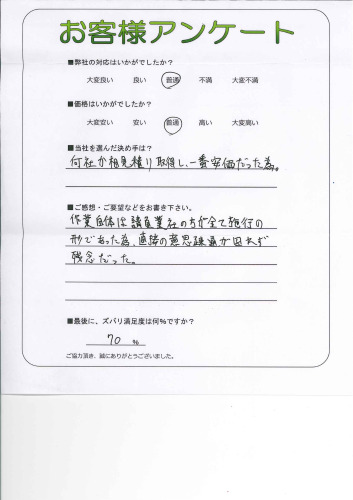 お客様アンケート
■弊社の対応はいかがでしたか?
大変良い 良い 普通 不満 大変不満
■価格はいかがでしたか?
大変安い 安い 普通 高い 大変高い
■当社を選んだ決め手は?
何社か相見積り取得し、一番安価だった為。
■ご感想・ご要望などをお書き下さい。
作業自体は請負業社のちが全て施行の
形であった為、直接の意思疎通が図れず
残念だった。
■最後に、ズバリ満足度は何%ですか?
70 %
ご協力頂き、誠にありがとうございました。